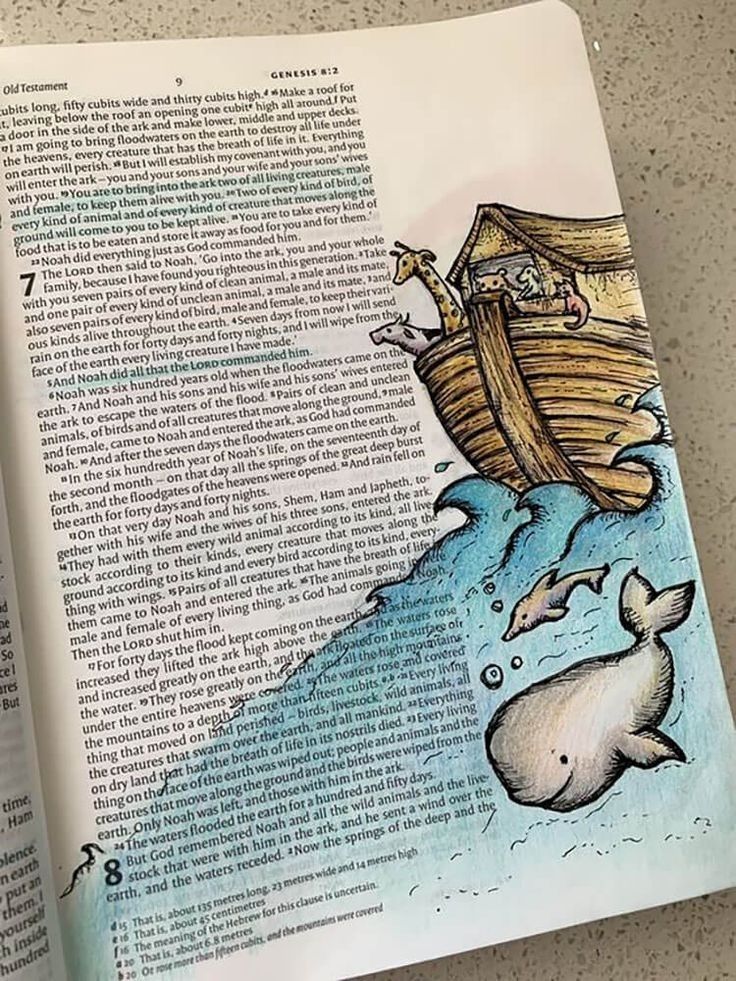 So
But
time,
, Ham
olence.
n earth
put an
them. I
yourself
h inside
hundred
Old Testament 9 GENESIS 8:2
cubits long, fifty cubits wide and thirty cubits high.ᵈ ¹⁶Make a roof for
it, leaving below the roof an opening one cubitᵉ high all around.ᶠ Put
a door in the side of the ark and make lower, middle and upper decks.
¹⁷I am going to bring floodwaters on the earth to destroy all life under
the heavens, every creature that has the breath of life in it. Everything
on earth will perish. ¹⁸But I will establish my covenant with you, and you
will enter the ark – you and your sons and your wife and your sons' wives
with you. ¹⁹You are to bring into the ark two of all living creatures, male
and female, to keep them alive with you. ²⁰Two of every kind of bird, of
every kind of animal and of every kind of creature that moves along the
ground will come to you to be kept alive. ²¹You are to take every kind of
food that is to be eaten and store it away as food for you and for them.'
²²Noah did everything just as God commanded him.
7 The LORD then said to Noah, 'Go into the ark, you and your whole
family, because I have found you righteous in this generation. ²Take
with you seven pairs of every kind of clean animal, a male and its mate,
and one pair of every kind of unclean animal, a male and its mate, ³and
also seven pairs of every kind of bird, male and female, to keep their vari-
ous kinds alive throughout the earth. ⁴Seven days from now I will send
rain on the earth for forty days and forty nights, and I will wipe from the
face of the earth every living creature I have made.'
⁵And Noah did all that the LORD commanded him.
⁶Noah was six hundred years old when the floodwaters came on the
earth. ⁷And Noah and his sons and his wife and his sons' wives entered
the ark to escape the waters of the flood. ⁸Pairs of clean and unclean
animals, of birds and of all creatures that move along the ground, ⁹male
and female, came to Noah and entered the ark, as God had commanded
Noah. ¹⁰And after the seven days the floodwaters came on the earth.
¹¹In the six hundredth year of Noah's life, on the seventeenth day of
the second month – on that day all the springs of the great deep burst
forth, and the floodgates of the heavens were opened. ¹²And rain fell on
the earth for forty days and forty nights.
¹³On that very day Noah and his sons, Shem, Ham and Japheth, to-
gether with his wife and the wives of his three sons, entered the ark.
¹⁴They had with them every wild animal according to its kind, all live-
stock according to their kinds, every creature that moves along the
ground according to its kind and every bird according to its kind, every-
thing with wings. ¹⁵Pairs of all creatures that have the breath of life
them came to Noah and entered the ark. ¹⁶The animals going in
male and female of every living thing, as God had commanded Noah.
Then the LORD shut him in.
¹⁷For forty days the flood kept coming on the earth, and as the waters
increased they lifted the ark high above the earth. ¹⁸The waters rose
and increased greatly on the earth, and the ark floated on the surface of
the water. ¹⁹They rose greatly on the earth, and all the high mountains
under the entire heavens were covered. ²⁰The waters rose and covered
the mountains to a depth of more than fifteen cubits.ᵃ,ᵇ ²¹Every living
thing that moved on land perished – birds, livestock, wild animals, all
the creatures that swarm over the earth, and all mankind. ²²Everything
on dry land that had the breath of life in its nostrils died. ²³Every living
thing on the face of the earth was wiped out; people and animals and the
creatures that move along the ground and the birds were wiped from the
earth. Only Noah was left, and those with him in the ark.
²⁴The waters flooded the earth for a hundred and fifty days.
8 But God remembered Noah and all the wild animals and the live-
stock that were with him in the ark, and he sent a wind over the
earth, and the waters receded. ²Now the springs of the deep and the
d 15 That is, about 135 metres long, 23 metres wide and 14 metres high
e 16 That is, about 45 centimetres
f 16 The meaning of the Hebrew for this clause is uncertain.
a 20 That is, about 6.8 metres
b 20 Or rose more than fifteen cubits, and the mountains were covered